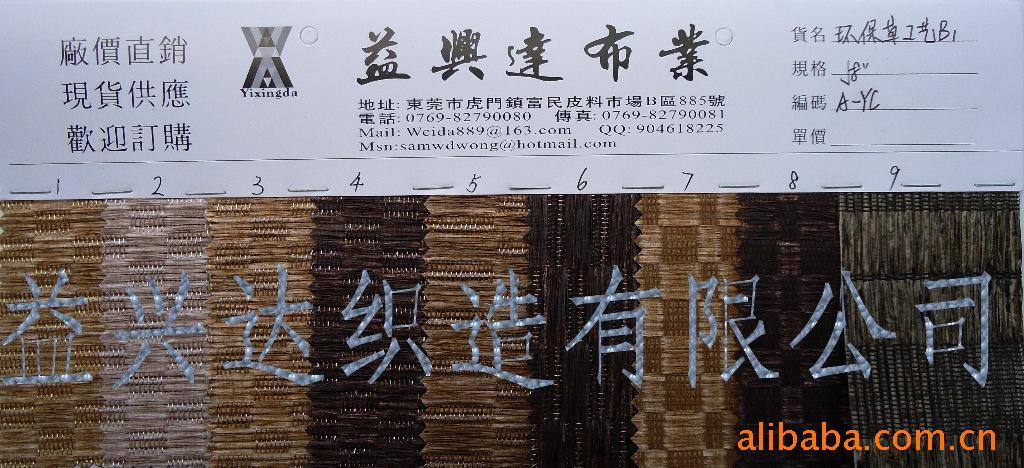 廠價直銷
現貨供應
歡迎訂購
Yixingda
益興達布業
地址: 東莞市虎門鎮富民皮料市場B區885號
電話: 0769-82790080 傳真: 0769-82790081
Mail: Weida889@163.com QQ: 904618225
Msn:samwdwong@hotmail.com
貨名 环保草工艺B1
規格 58"
編碼 A-YC
單價
1 2 3 4 5 6 7 8 9
益兴达织造有限公司
alibaba.com.cn